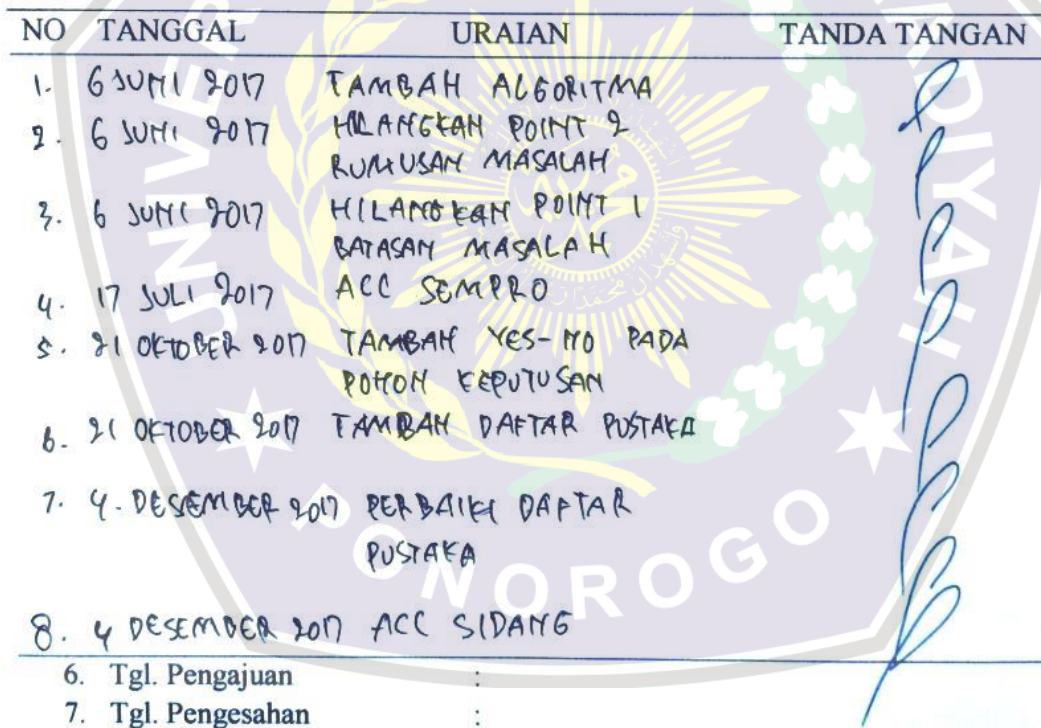 NO TANGGAL URAIAN TANDA TANGAN
1. 6 JUNI 2017 TAMBAH ALGORITMA
2. 6 JUNI 2017 HILANGKAN POINT 2
RUMUSAN MASALAH
3. 6 JUNI 2017 HILANGKAN POINT 1
BATASAN MASALAH
4. 17 JULI 2017 ACC SEMPRO
5. 21 OKTOBER 2017 TAMBAH YES-NO PADA
POHON KEPUTUSAN
6. 21 OKTOBER 2017 TAMBAH DAFTAR PUSTAKA
7. 4. DESEMBER 2017 PERBAIKI DAFTAR
PUSTAKA
8. 4 DESEMBER 2017 ACC SIDANG
6. Tgl. Pengajuan :
7. Tgl. Pengesahan :
UNIVER
ADIYAH
PONOROGO